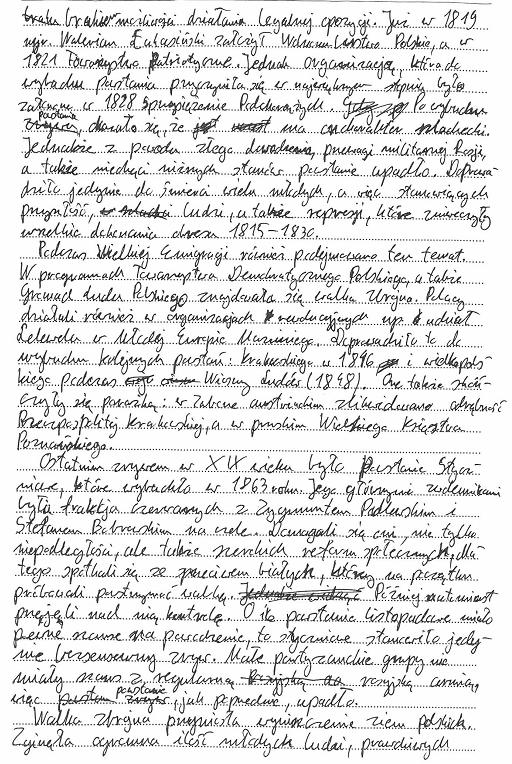 braku możliwości działania legalnej opozycji. Już w 1819
mjr. Walerian Łukasiński założył Wolnomularstwo Polskie, a w
1821 Towarzystwo Patriotyczne. Jednak organizacją, która do
wybuchu powstania przyczyniła się w największym stopniu było
założone w 1828 Sprzysiężenie Podchorążych. Po wybuchu
Powstania okazało się, że ma charakter szlachecki.
Jednakże z powodu złego dowodzenia, przewagi militarnej Rosji,
a także niechęci niższych stanów powstanie upadło. Doprowa-
dziło jedynie do śmierci wielu młodych, a więc stanowiących
przyszłość, ludzi, a także represji, które zniweczyły
wszelkie dokonania okresu 1815-1830.
Podczas Wielkiej Emigracji również podejmowano ten temat.
W programach Towarzystwa Demokratycznego Polskiego, a także
Gromad Ludu Polskiego znajdowała się walka zbrojna. Polacy
działali również w organizacjach rewolucyjnych np. udział
Lelewela w Młodej Europie Mazziniego. Doprowadziło to do
wybuchu kolejnych powstań: krakowskiego w 1846 i wielkopols-
kiego podczas Wiosny Ludów (1848). One także skoń-
czyły się porażką: w zaborze austriackim zlikwidowano odrębność
Rzeczpospolitej Krakowskiej, a w pruskim Wielkiego Księstwa
Poznańskiego.
Ostatnim zrywem w XIX wieku było Powstanie Stycz-
niowe, które wybuchło w 1863 roku. Jego głównymi zwolennikami
była frakcja czerwonych z Zygmuntem Padlewskim i
Stefanem Bobrowskim na czele. Domagali się oni, nie tylko
niepodległości, ale także szerokich reform społecznych, dla-
tego spotkali się ze sprzeciwem białych, którzy na początku
próbowali powstrzymać walkę. Później natomiast
przejęli nad nią kontrolę. O ile powstanie listopadowe miało
pewne szanse na powodzenie, to styczniowe stanowiło jedy-
nie bezsensowny zryw. Małe partyzanckie grupy nie
miały szans z regularną rosyjską armią,
więc powstanie, jak poprzednie, upadło.
Walka zbrojna przyniosła wyniszczenie ziem polskich.
Zginęła ogromna ilość młodych ludzi, prawdziwych